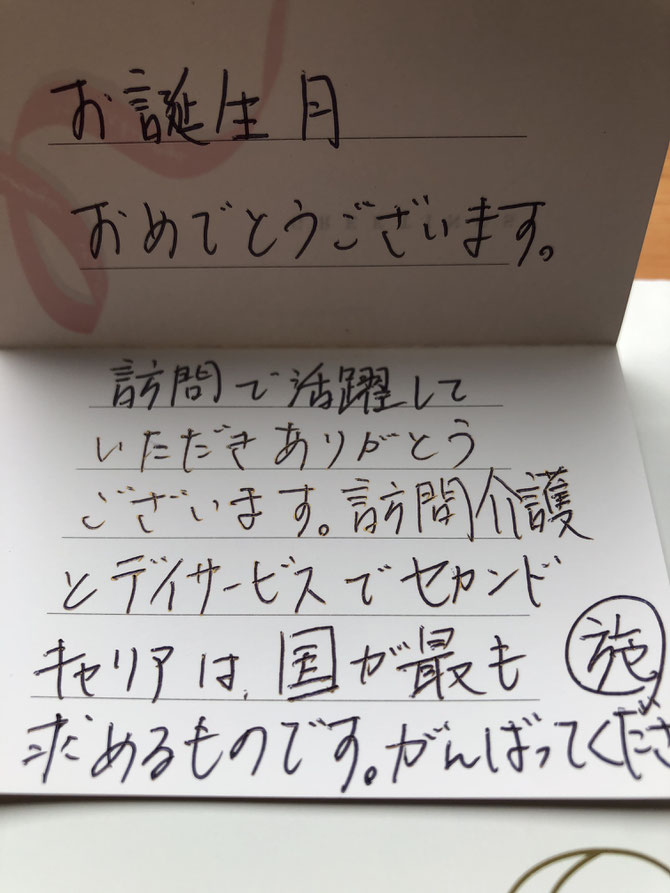 お誕生月
おめでとうございます。
訪問で活躍して
いただきありがとう
ございます。訪問介護
とデイサービスでセカンド
キャリアは、国が最も
求めるものです。がんばってくださ
い
施